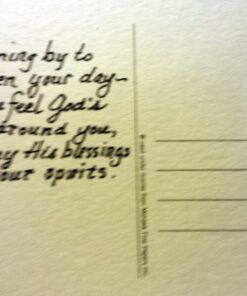 ning by to
en your day—
feel God's
around you,
His blessings
our spirits.